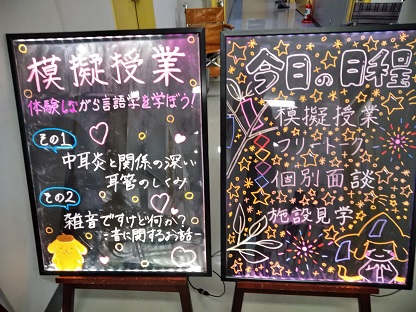 模擬授業
体験しながら言語学を学ぼう!
その1
中耳炎と関係の深い
耳管のしくみ
その2
雑音ですけど何か?
-音に関するお話-
今日の日程
模擬授業
フリートーク
個別面談
施設見学